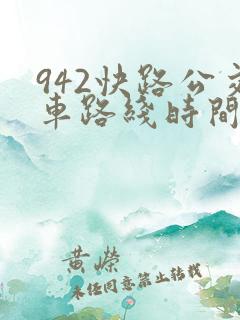 942快路公交
車路綫時間
黃嶸
未经同意禁止转载